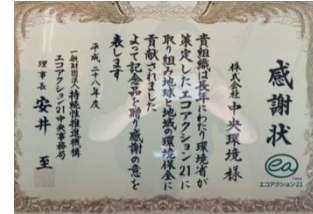 感謝状
株式会社 中央環境 様
貴組織は長年にわたり環境省が
策定したエコアクション21に
取り組み地球と地域の環境保全に
貢献されました
よって記念品を贈り感謝の意を
表します
平成二十八年度
一般財団法人 持続性推進機構
エコアクション21中央事務局
理事長 安井 至
ea
エコアクション21